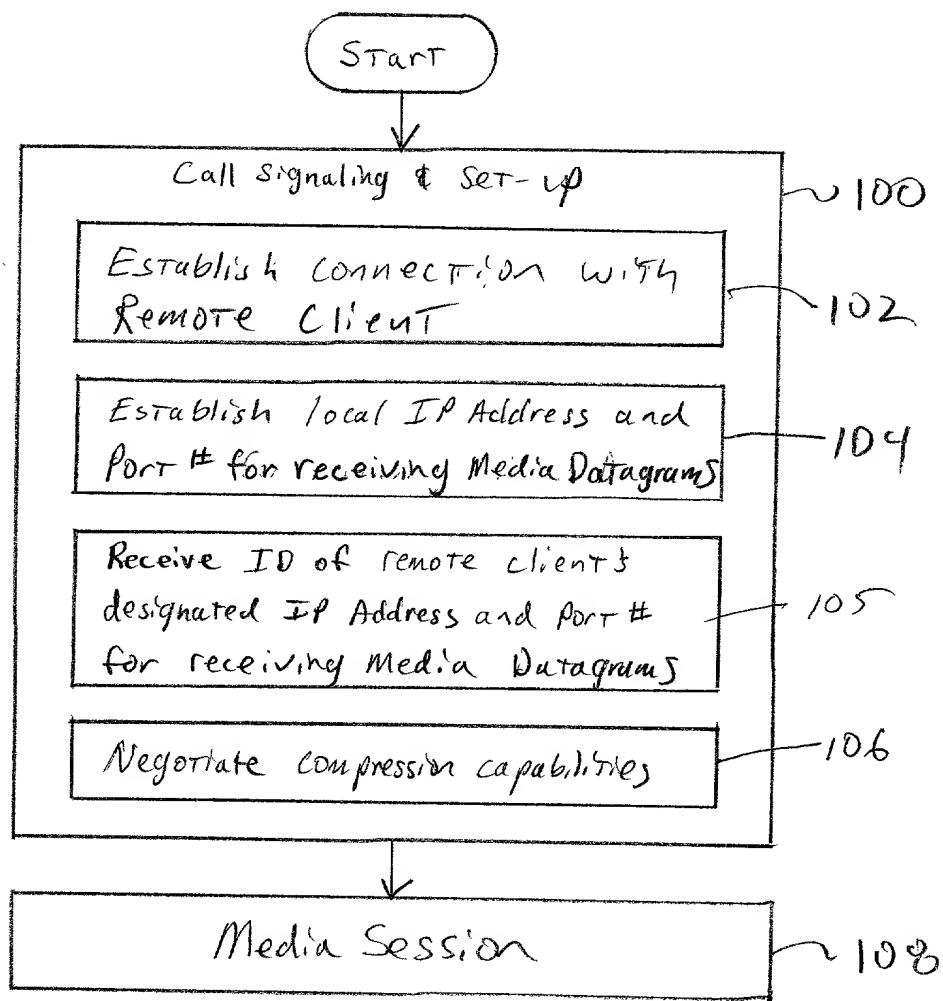 Start
Call Signaling & Set-up
100
Establish connection with
Remote Client
102
Establish local IP Address and
Port # for receiving Media Datagrams
104
Receive ID of remote client's
designated IP Address and Port #
for receiving Media Datagrams
105
Negotiate compression capabilities
106
Media Session
108